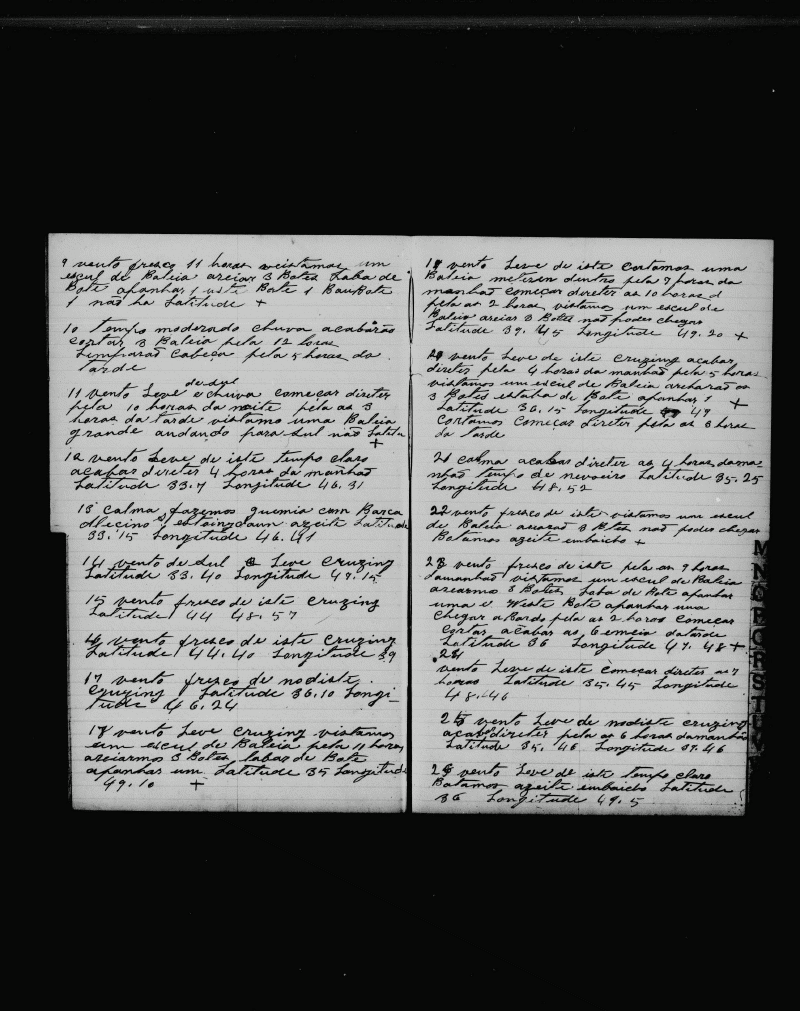 9 vento fresco 11 horas veistamos um
escul de Baleia areiar 3 Botes Laba de
Bote apanhar 1 uste Bote 1 BauBote
1 não ha Latitude +
10 tempo moderado chuva acabarão
cortar 3 Baleia pela 12 horas
Limparão Cabeça pela 5 horas da
tarde
de sul
11 vento Leve e chuva começar direter
pela 10 horas da noite pela as 3
horas da tarde vistamo uma Baleia
grande andando para sul não Latitu
+
12 vento Leve de iste tempo claro
acabar direter 4 horas da manhão
Latitude 33.7 Longitude 46.31
13 calma, fazemos guemia com Barca
azeite Latitude
33.15 Longitude 46.41
14 vento de sul Leve Cruzing
Latitude 33.40 Longitude 47.15
15 vento fresco de iste cruzing
Latitude 44 48.57
16 vento fresco de iste Cruzing
Latitude 44.40 Longitude 39
17 vento fresco de nodiste
Cruzing Latitude 36.10 Longi-
tude 46.24
18 vento Leve Cruzing vistamos
um escul de Baleia pela 11 horas
areiarmos 3 Botes labar de Bote
apanhar um Latitude 35 Longitude
49.10 +
19 vento Leve de iste Cortamos uma
Baleia meterin dentro pela 7 horas da
manhão começar direter as 10 horas d
pela as 2 horas vistamos um escul de
Baleia areiar 3 Botes não podes chegar
Latitude 39.45 Longitude 49.20 +
20 vento Leve de iste Cruzing acabar
direter pela 4 horas da manhão pela 5 horas
vistamos um escul de Baleia arearão os
3 Botes estaba de Bote apanhar 1 +
Latitude 36.15 Longitude 49
Cortamos Começar direter pela as 3 horas
da tarde
21 calma acabar direter as 4 horas dama-
nhão tempo de nevoeiro Latitude 35.25
Longitude 48.52
22 vento fresco de iste vistamos um escul
de Baleia arearão 3 Botes não podes chegar
Botamos azeite embaicho +
23 vento fresco de iste pela as 9 horas
damanhão vistamos um escul de Balia
areiarmo 3 Botes Laba de Bote apanhar
uma e Weste Bote apanhar uma
Chegar a Bordo pela as 2 horas Começar
Cortar acabar as 6 emeia datarde
Latitude 36 Longitude 47.48 +
24
vento Leve de iste Começar direter as 7
horas Latitude 35.45 Longitude
48.46
25 vento Leve de nodiste cruzing
acab direter pela as 6 horas damanhão
Latitude 35.46 Longitude 49.46
26 vento Leve de iste tempo claro
Botamos azeite embaicho Latitude
36 Longitude 49.5